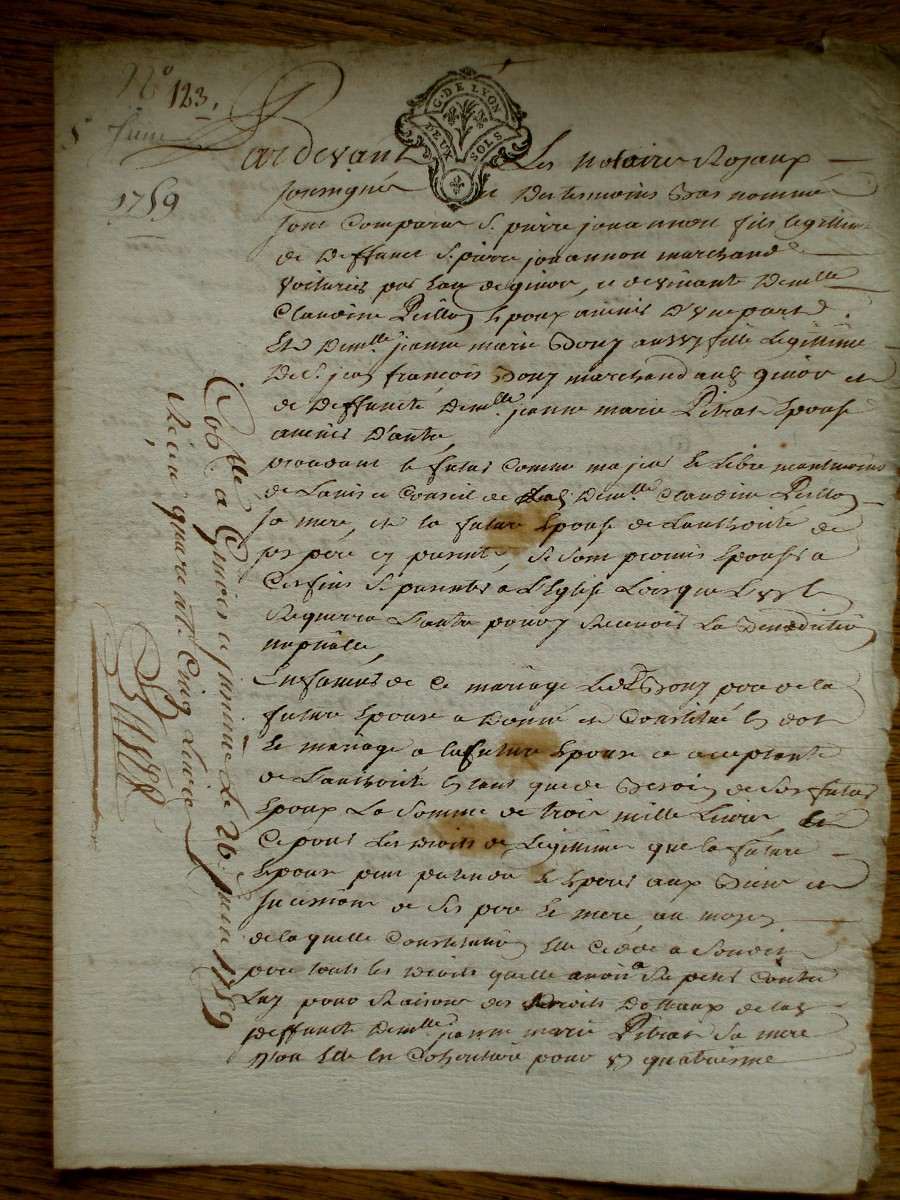 N° 123,
5 Juin
1759
G. DE LYON
DEUX SOLS
Pardevant Les notaires Royaux
soussignés et Des temoins Bas nommé
sont Comparus Sr. pierre jouannon fils legitime
de Deffunct Sr. pierre jouannon marchand
voiturier par Eau de givor, et de vivante Demlle
Claudine Peillon Epoux avenir D'une part
Et Demlle jeanne marie Bony aussy fille Legitime
De Sr. jean françois Bony marchand aud givor et
de Deffuncte Demlle jeanne marie Pitrat Epouse
avenir D'autre,
procedant le futur Comme majeur Et libre neantmoins
de L'avis et Conseil de lad Demlle Claudine Peillon
sa mere, et la future Epouse de L'authorité de
son pere cy present, se sont promis Epouser a
Ces fins se presenter a L'Eglise Lorsque L'un
Requerra L'autre pour y Recevoir La Benediction
nuptialle,
En faveur de Ce mariage Led Sr Bony pere de la
future Epouse a Donné et Constitué En dot
Et mariage a la future Epouse ce acceptante
de L'authorité En tant que de Besoin de Son futur
Epoux La Somme de trois mille Livres,
Ce pour Les Droits de Legitime que la future
Epouse peut pretendre Et Esperer aux Biens et
successions de Ses pere Et mere, au moyen
de laquelle Constitution Elle Cedde a Sondit
pere touts les Droits quelle avoit a Repeter Contre
Luy pour Raison des Droits Dottaux de lad
Deffuncte Demlle jeanne marie Pitrat Sa mere
Dont Elle Est Coheritiere pour un quatrieme
Conllé a Givors ce Juin Le 26 juin 1759
Reçu quarante Cinq Livres